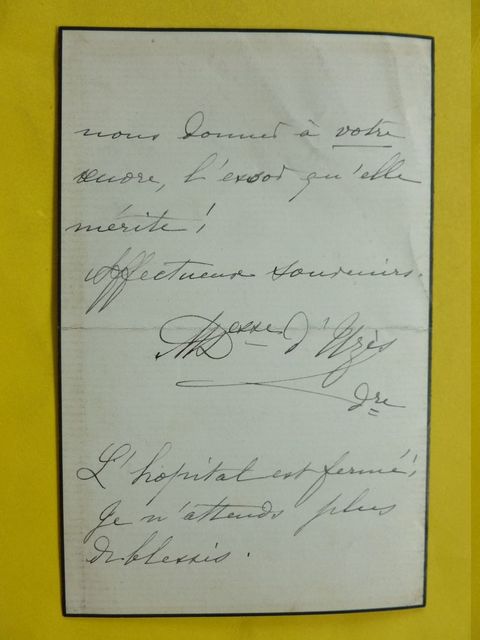 nous donner à votre
œuvre, l'essor qu'elle
mérite!
Affectueux souvenirs.
Desse d'Uzès
dre
L'hopital est fermé,
je n'attends plus
de blessés.